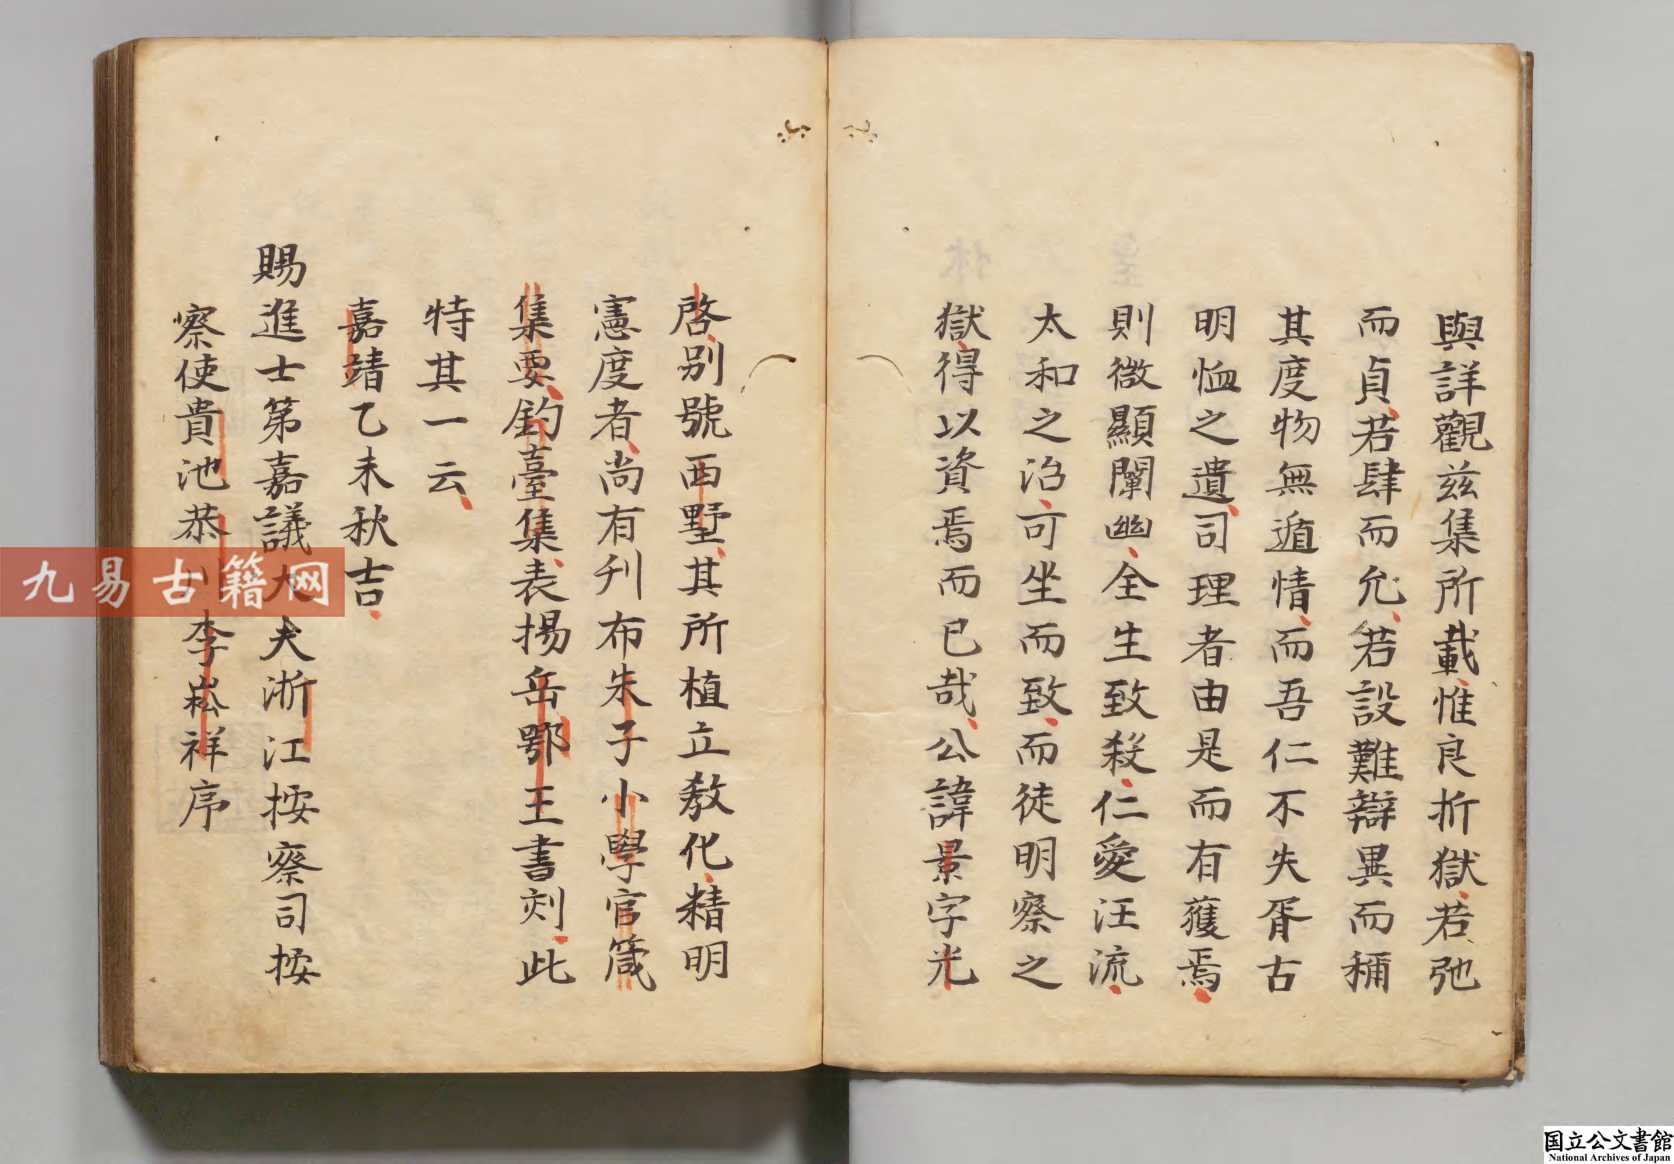 與詳觀兹集所載惟良折獄若弛
而貞若肆而允若設難辯異而稱
其度物無遁情而吾仁不失胥古
明恤之遺司理者由是而有獲焉
則微顯闡幽全生致殺仁愛汪流
太和之治可坐而致而徒明察之
獄得以資焉而已哉公諱景字光
啓别號西墅其所植立教化精明
憲度者尚有刋布朱子小學官箴
集要釣臺集表揚岳鄂王書刻此
特其一云
嘉靖乙未秋吉
賜進士第嘉議大夫浙江按察司按
察使貴池恭川李崧祥序
九易古籍网
国立公文書館
National Archives of Japan